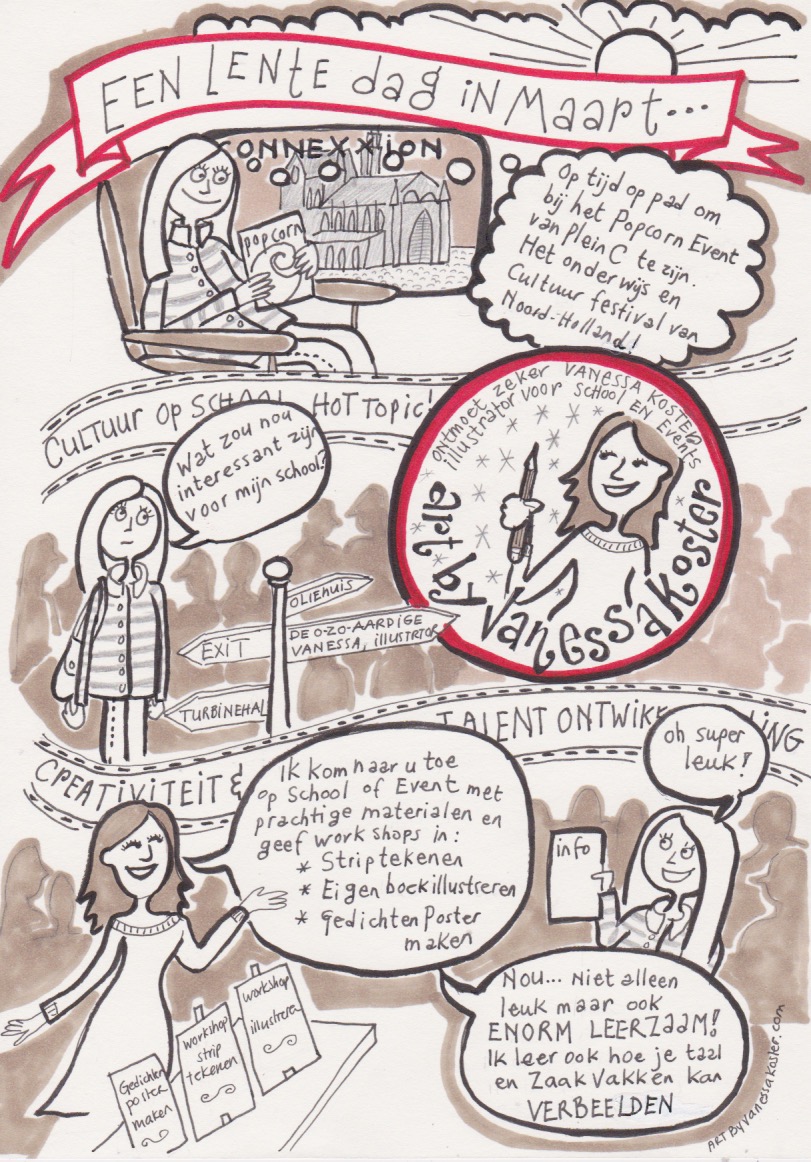 EEN LENTE dag iN Maart...
CONNEXXiON
popcorn
Op tijd op pad om
bij het Popcorn Event
van plein C te zijn.
Het onderwijs en
Cultuur festival van
Noord-Holland!
CULTUUR OP SCHOOL HOT TOPIC!
Wat zou nou
interessant zijn
voor mijn school?
ontmoet zeker VANESSA KOSTER
illustrator voor SCHOOL EN Events
art by Vanessa Koster
OLIEHUIS
EXIT
DE O-ZO-AARDIGE
VANESSA, ILLUSTRTOR
TURBINEHAL
CREATIVITEIT &
TALENT ONTWIKKELING
oh super
leuk!
Ik kom naar u toe
op School of Event met
prachtige materialen en
geef work shops in:
* Striptekenen
* Eigen boek illustreren
* Gedichten Poster
maken
info
Nou... Niet alleen
leuk maar ook
ENORM LEERZAAM!
Ik leer ook hoe je taal
en Zaakvakken kan
VERBEELDEN
workshop
illustreren
workshop
strip
tekenen
Gedichten
poster
maken
ART By Vanessakoster.com